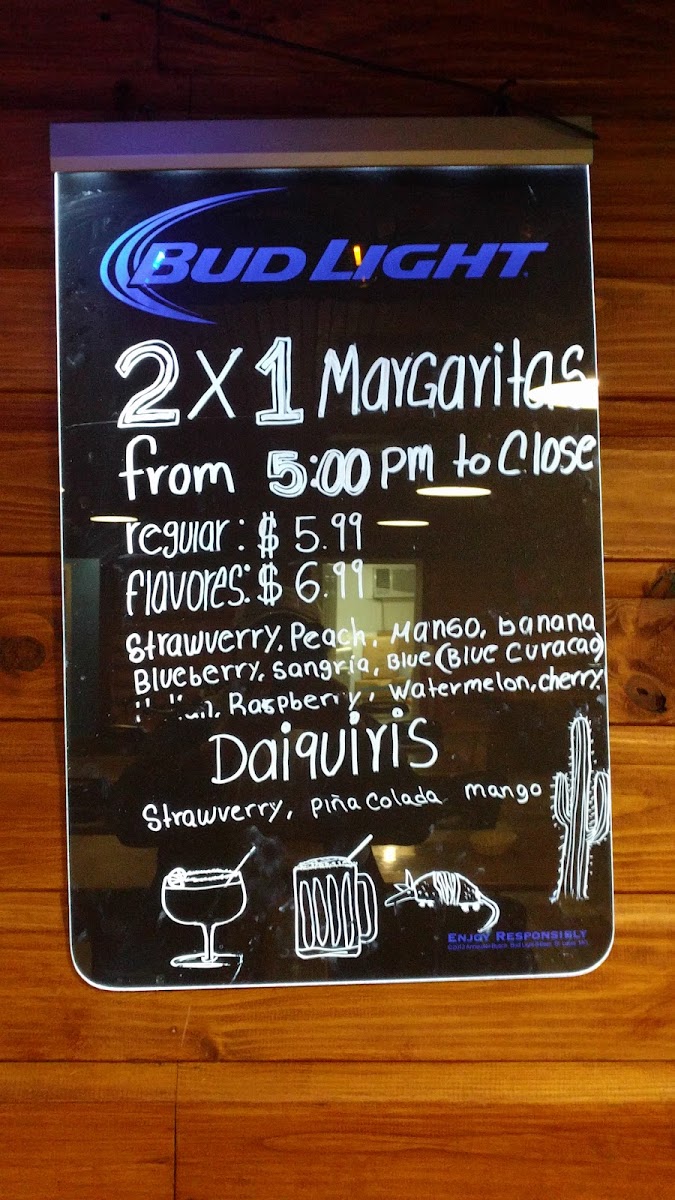 BUD LIGHT
2 x 1 Margaritas
from 5:00 pm to Close
regular: $ 5.99
flavores: $ 6.99
Strawverry, Peach, Mango, banana
Blueberry, Sangria, Blue (Blue Curacao)
Raspberry, Watermelon, cherry
Daiquiris
Strawverry, Piña Colada mango
ENJOY RESPONSIBLY